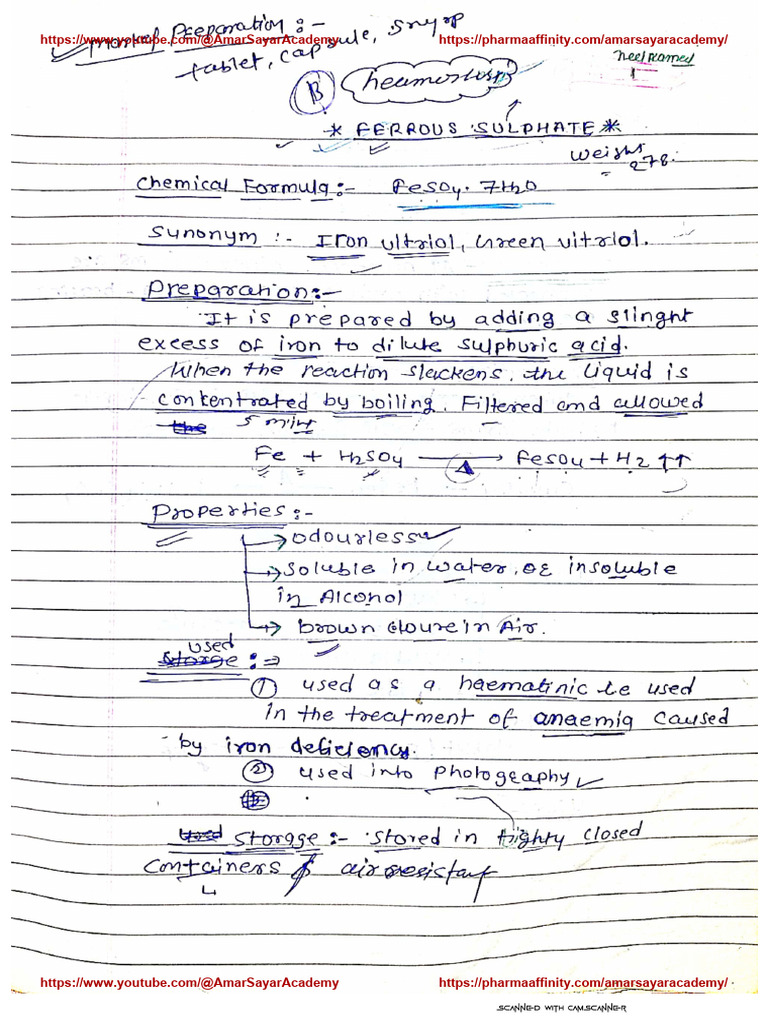 https://www.youtube.com/@AmarSayarAcademy https://pharmaaffinity.com/amarsayaracademy/
Preparation :-
tablet, capsule,
B
* FERROUS SULPHATE *
Weight
278.
Chemical Formula:- FeSO4. 7H2O
Sunonym :- Iron vitriol, Green vitriol.
Preparation:-
It is prepared by adding a slinght
excess of iron to dilute sulphuric acid.
When the reaction slackens, the liquid is
contentrated by boiling. Filtered and allowed
5 mint
Fe + H2SO4 ⟶ FeSO4 + H2 ↑↑
Δ
Properties:-
→ odourless
→ soluble in water, insoluble
in Alconol
→ brown cloure in Air.
used
Storge :- ⇒
① used as a haematinic ie used
in the treatment of anaemia caused
by iron deficiency.
② used into photography
Used Storage :- stored in tighty closed
containers & air resistant
https://www.youtube.com/@AmarSayarAcademy https://pharmaaffinity.com/amarsayaracademy/
SCANNED WITH CAMSCANNER